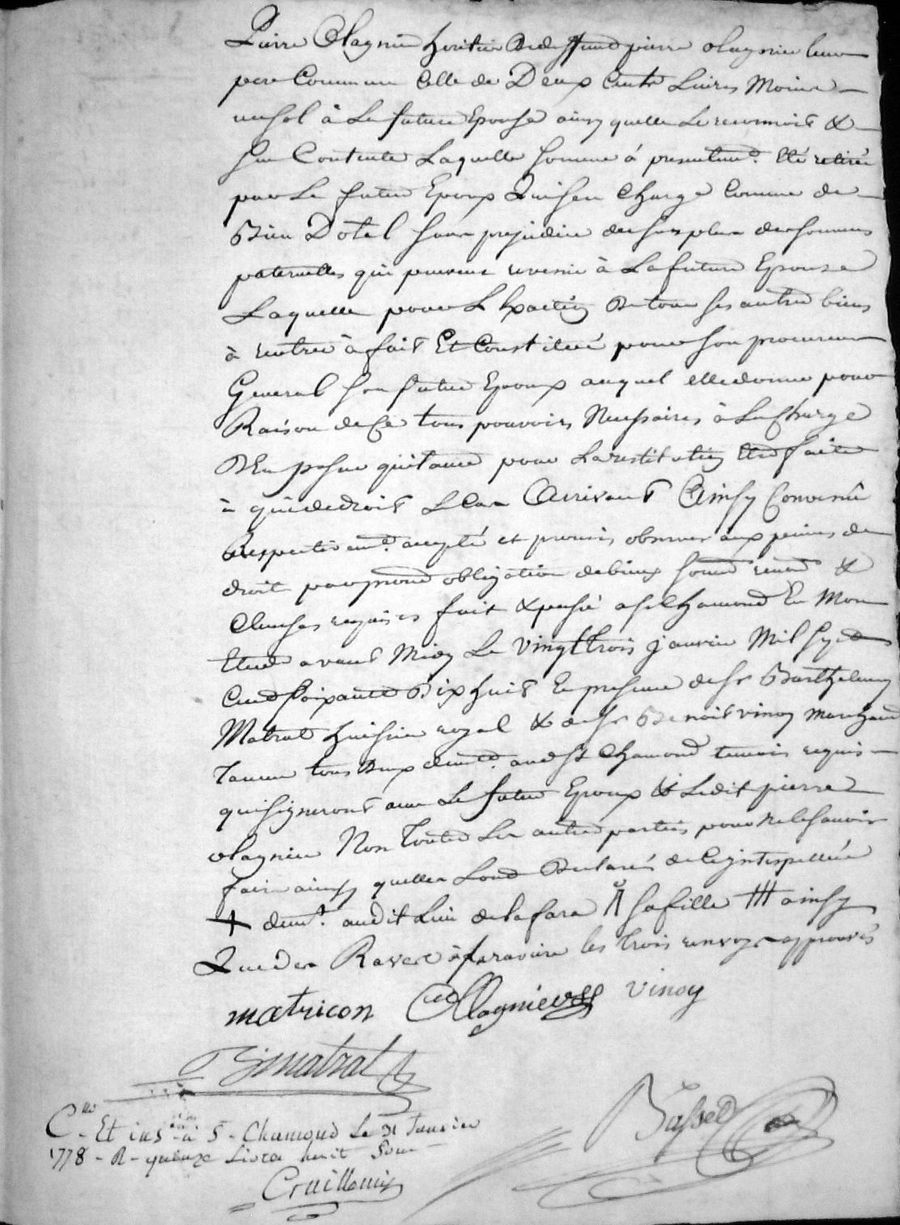 Pierre Olagnier heritier dudeffunt pierre olagnier leur
pere Commun Celle de Deux Cents Livres Moins
un sol à La future Epouse ainsy quelle Le reconnoit &
sen Contente Laquelle somme à presentem.t Eté retirée
par Le futur Epoux Quisen Charge Comme de
Bien Dotal sans prejudice des surplus des sommes
paternelles qui peuvent revenir à La future Epouse
Laquelle pour L'Exaction De tous ses autres biens
à Entrer à fait Et Constitué pour son procureur
General son futur Epoux auquel elle donne pour
Raison de Ce tous pouvoirs Necessaires à La Charge
D'En passer quitance pour La restitution Etre faite
à qui de droit Le Cas Arrivant Ainsy Convenu
Respectivem.t accepté et promis observer aux peines de
droit par mond obligation de biens soumd renond &
Clauses requises fait & passé a st chamond En Mon
Etude avant Midy Le vingttrois janvier Mil Sept
Cendsoixante Dixhuit En presence de sr Barthelemy
Matrat huissier royal & de sr Benoit vinoy marchand
Taneur tous Deux demt. aud st Chamond temoins requis
qui signeront avec Le futur Epoux & Ledit pierre
olagnier Non Toutes Les autres parties pour ne le savoir
faire ainsy quelles Lond Declaré de Ce interpellées
+ demt. audit Lieu de la fara # sa fille ## ainsy
Que des Ravat à faravire les trois renvoys approuvés
matricon Olagnier vinoy
Bmatrat
Basset
C.lle Et ins. à S-Chamond Le 31 Janvier
1778 - R - quinze Livres huit sous